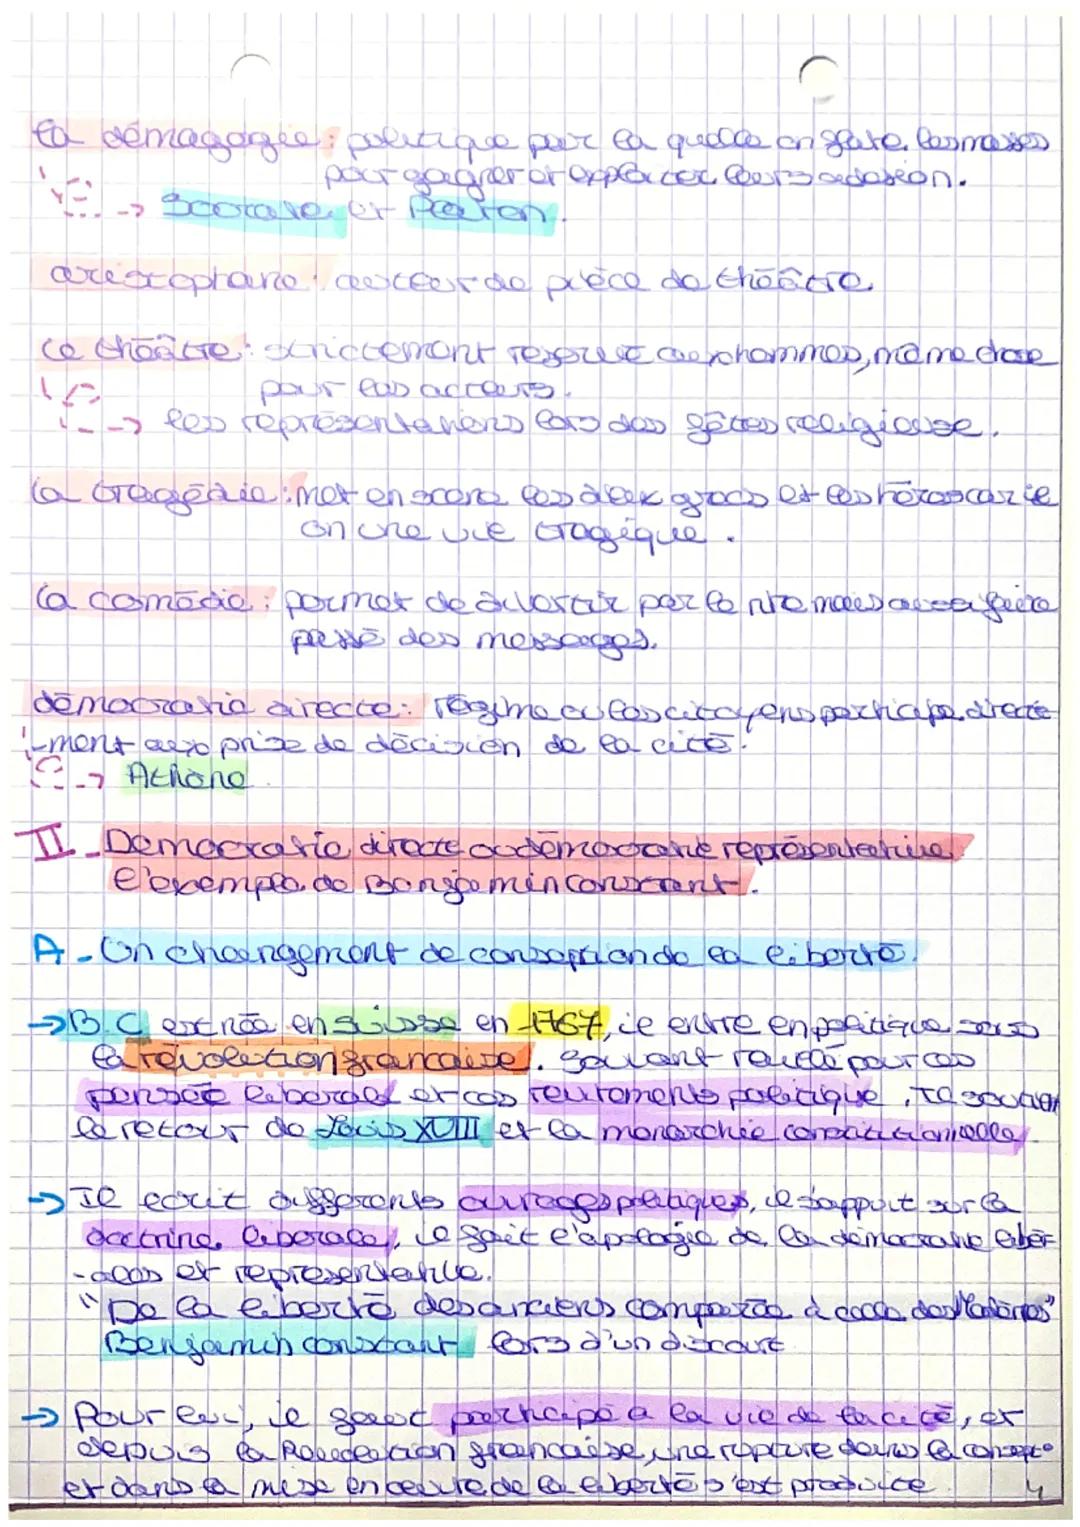 la démagogie : politique par la quelle on flate les masses
pour gagner et exploiter leurs adésion.
--> Socrate et Platon.
aristophane : auteur de pièce de théâtre.
le théâtre : strictement reservé aux hommes, même chose
pour les acteurs.
--> les représentations lors des fêtes religieuse.
la tragédie : met en scène les dieux grecs et les héros car ils
on une vie tragique.
la comédie : permet de divertir par le rire mais aussi faire
passé des messages.
démocratie directe : régime où les citoyens participe directe
-ment aux prise de décision de la cité.
--> Athène.
II - Démocratie directe ou démocratie représentative
l'exemple de Benjamin Constant.
A - Un changement de conseption de la liberté.
→ B.C est née en Suisse en 1767, il entre en politique sous
la révolution française. Souvent pour ces
pensée liberales et ces revirements politique. Il soutien
le retour de Louis XVIII et la monarchie constitutionnelle.
→ Il écrit différents ouvrages politiques, il s'appuit sur la
doctrine liberale, il fait l'apologie de la démocratie libér-
-ales et représentative.
"De la liberté des anciens comparée à celle des Modernes"
Benjamin Constant lors d'un discourt
→ Pour lui, il faut participé a la vie de la cité, et
depuis la Révolution française, une rupture dans la concept°
et dans la mise en oeuvre de la liberté s'est produite.
4